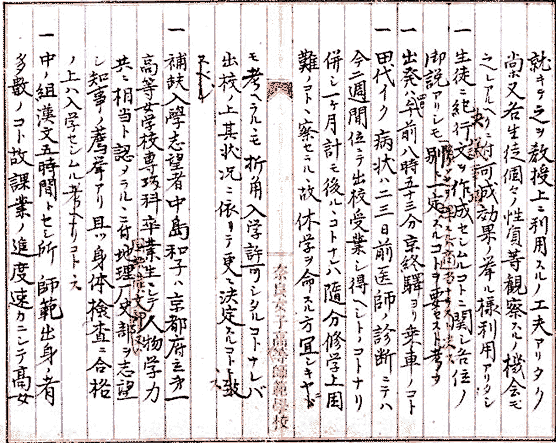 就キテ之ヲ教授上ニ利用スルノ工夫アリタク
尚ホ又各生徒個々ノ性質等観察スルノ機会モ
之レアルベクニ付可成効果ノ挙ル様利用アリタシ
一 生徒ニ紀行文ヲ作成セシムルコトニ関シ各位ノ
御説アリシモ別ニ一定スルコトヲ要セズ
一 出発ハ午前八時五十三分京終駅ヨリ乗車ノコト
一 田代イク病状ハ二三日前医師ノ診断ニテハ
今二週間位ニテ出校受業シ得ベシトノコトナリ
併シ一ヶ月計モ後ルヽコトナレバ随分修学上困
難ノコトト察セラル故休学ヲ命スル方宜シキヤ
モ考ヘラルヽモ折角入学許可シタルコトナレバ
出校ノ上其状況ニ依リテ更ニ決定スルコトト致
スベシ
一 補欠入学志望者中島和子ハ京都府立第一
高等女学校専攻科卒業生ニシテ人物学力
共ニ相当ト認メラルヽニ付地理歴史部ヲ志望
シ知事ノ薦挙アリ且ツ身体検査ニ合格
ノ上ハ入学セシムル考ナリトノコトス
一 中ノ組漢文五時間トセシ所師範出身ノ者
多数ノコト故課業ノ進度速カニシテ高女
奈良女子高等師範學校